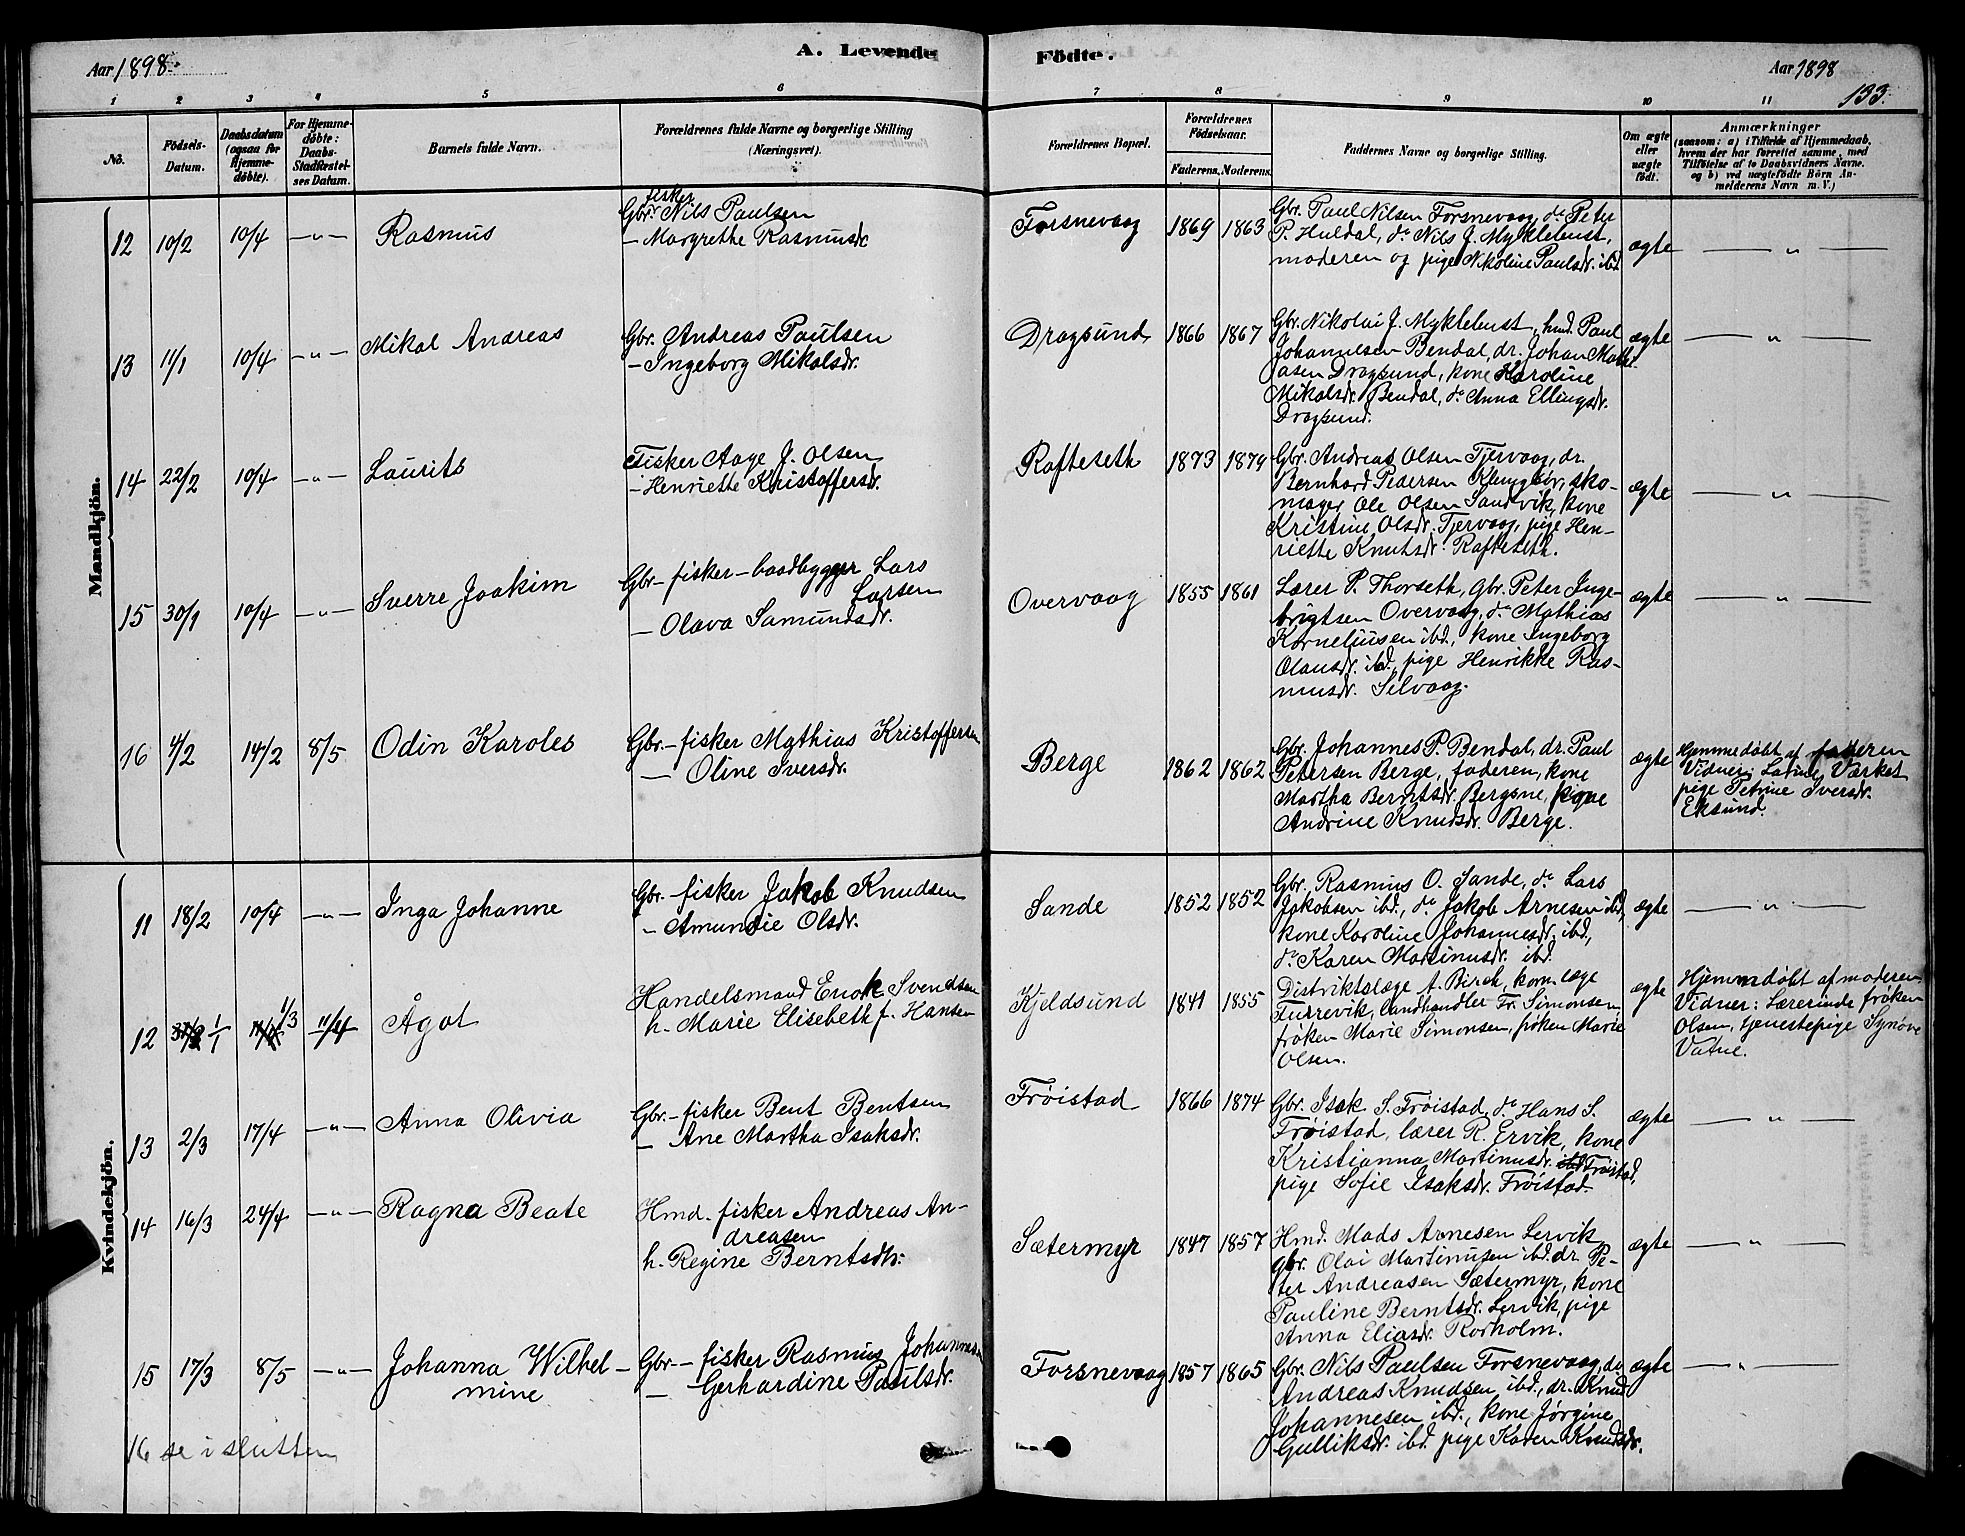 Aar 1898.
A. Levende Födte.
Aar 1898
133.
1 2 3 4 5 6 7 8 9 10 11
No.
Födsels-Datum.
Daabsdatum (ogsaa for Hjemme-döbte).
For Hjemme-döbte: Daabs-Stadfæstel-ses Datum.
Barnets fulde Navn.
Forældrenes fulde Navne og borgerlige Stilling (Næringsvei).
Forældrenes Bopæl.
Forældrenes Födselsaar.
Faderens. Moderens.
Faddernes Navne og borgerlige Stilling.
Om ægte eller uægte födt.
Anmærkninger
(saasom: a) i Tilfælde af Hjemmedaab,
hvem der har forrettet samme, med
Tilföielse af to Daabsvidners Navne,
og b) ved uægtefödte Börn An-
melderens Navn m. V.)
Mandkjön.
12 10/2 10/4 —"— Rasmus
fisker
Gbr. Nils Paulsen
- Margrethe Rasmusdr
Forsnevaag 1869 1863
Gbr. Paul Nilsen Forsnevaag, do Peter
P. Huldal, do Nils J. Myklebust,
moderen og pige Nikoline Paulsdr. ibd
ægte — " —
13 11/1 10/4 —"— Mikal Andreas
Gbr. Andreas Paulsen
- Ingeborg Mikalsdr.
Dragsund 1866 1867
Gbr. Nikolai J. Myklebust, hmd. Paul
Johannesen Bendal, dr. Johan Math-
iasen Dragsund, kone Karoline
Mikalsdr. Bendal, do Anna Ellingsdr.
Dragsund.
ægte — " —
14 22/2 10/4 —"— Laurits
Fisker Aage J. Olsen
- Henriette Kristoffersdr.
Rafteseth 1873 1879
Gbr. Andreas Olsen Tjervaag, dr.
Bernhard Pedersen Klungbör, sko-
mager Ole Olsen Sandvik, kone
Kristine Olsdr. Tjervaag, pige Hen-
riette Knutsdr. Rafteseth.
ægte — " —
15 30/1 10/4 —"— Sverre Joakim
Gbr- fisker - baadbygger Lars
Larsen
- Olava Samundsdr.
Overvaag 1855 1861
Lærer P. Thorseth, Gbr. Peter Inge-
brigtsen Overvaag, do Mathias
Korneliusen ibd., kone Ingeborg
Olausdr. ibd, pige Henrikke Ras-
musdr. Selvaag.
ægte — " —
16 4/2 14/2 8/5 Odin Karoles
Gbr.- fisker Mathias Kristoffersen
- Oline Iversdr.
Berge 1862 1862
Gbr. Johannes P. Bendal, dr. Paul
Petersen Berge, faderen, kone
Martha Berntsdr. Bergsne, pige
Andrine Knudsdr. Berge.
ægte
Hjemmedöbt af faderen
Vidner: Værket
pige Petrine Iversdr.
Eksund.
Kvindekjön.
11 18/2 10/4 —"— Inga Johanne
Gbr.- fisker Jakob Knudsen
- Amundie Olsdr.
Sande 1852 1852
Gbr. Rasmus O. Sande, do Lars
Jakobsen ibd., do Jakob Arnesen ibd,
kone Karoline Johannesdr. ibd.,
do Karen Martinusdr. ibd.
ægte — " —
12 1/1 1/3 11/4 Ågot
Handelsmand Enok Svendsen
h. Marie Elisebeth f. Hansen
Kjeldsund 1841 1855
Distriktslæge A. Birch, kom. læge
Furrevik, landhandler Fr. Simonsen,
fröken Marie Simonsen, fröken Marie
Olsen.
ægte
Hjemmdöbt af moderen
Vidner: Lærerinde fröken
Olsen, tjenestepige Synöve
Vatne.
13 2/3 17/4 —"— Anna Olivia
Gbr.- fisker Bent Bentsen
- Ane Martha Isaksdr.
Fröistad 1866 1874
Gbr. Isak S. Fröistad, do Hans S.
Fröistad, lærer R. Ervik, kone
Kristianna Martinusdr. ibd Fröistad,
pige Sofie Isaksdr. Fröistad.
ægte — " —
14 16/3 24/4 —"— Ragna Beate
Hmd. fisker Andreas An-
dreasen
h. Regine Berntsdtr.
Sætermyr 1847 1857
Hmd. Mads Arnesen Lervik,
gbr. Olai Martinusen ibd. dr. Pe-
ter Andreasen Sætermyr, kone
Pauline Berntsdr. Lervik, pige
Anna Eliasdr. Rorholm.
ægte — " —
15 17/3 8/5 —"— Johanna Wilhel-
mine
Gbr.- fisker Rasmus Johannesen
- Gerhardine Paulsdr.
Forsnevaag 1857 1865
Gbr. Nils Paulsen Forsnevaag, do
Andreas Knudsen ibd., dr. Knud
Johannesen ibd., kone Jörgine
Gulliksdr. ibd. pige Karen Knudsdr.
ægte — " —
16 se i slutten